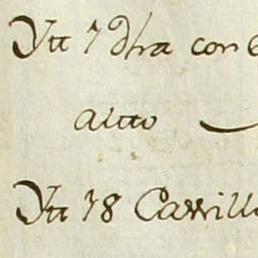 Ytt 7 dha con
altto
Ytt 78 Carrill